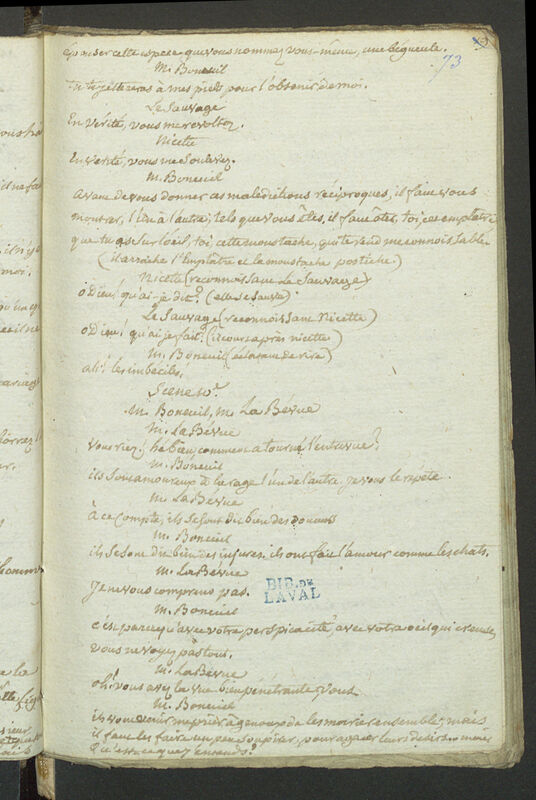 73
épouser cette espece que vous nommez vous-même, une bégueule.
M. Boneuil
tu te jetteras à mes pieds pour l'obtenir de moi.
Le Sauvage
En verité, vous me revoltez.
Nicette
En verité, vous me soulevez.
M. Boneuil
avant de vous donner as malédictions réciproques, il faut vous
montrer, l'un à l'autre, tels que vous êtes, il faut ôter, toi, cet emplatre
que tu as sur l'oeil, toi, cette moustache, qui te rend meconnoissable
(il arrache l'Emplâtre et la moustache postiche.)
Nicette (reconnoissant Le Sauvage)
o Dieu! qu'ai-je dit? (elle se sauve)
Le Sauvage (reconnoissant Nicette)
o Dieu! qu'ai je fait! (il court après nicette)
M. Boneuil (éclatant de rire)
ah! les imbeciles.
Scene
M. Boneuil, M. La Bévue
M. La Bévue
Vous riez! hé bien, comment a tourné l'entrevue?
M. Boneuil
ils sont amoureux à la rage l'un de l'autre, je vous le repete.
M. La Bévue
à ce compte, ils se sont dit bien des douceurs
M. Boneuil
ils se sont dit bien des injures, ils ont fait l'amour comme les chats.
M. La Bévue
Je ne vous comprens pas.
BIB. DE
LAVAL
M. Boneuil
c'est parce qu'avec votre perspicacité, avec votre oeil qui creuse,
vous ne voyez pas tout.
M. La Bévue
oh! vous avez la vue bien pénétrante, vous
M. Boneuil
ils vont venir me prier à genoux de les marier ensemble; mais
il faut les faire un peu soupirer, pour agacer leurs desirs... mais
qu'est-ce que j'entends?